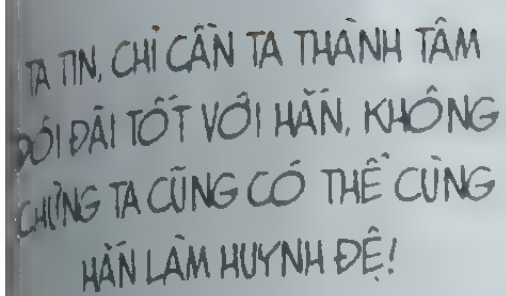 TA TIN, CHỈ CẦN TA THÀNH TÂM
ĐỐI ĐÃI TỐT VỚI HẮN, KHÔNG
CHỪNG TA CŨNG CÓ THỂ CÙNG
HẮN LÀM HUYNH ĐỆ!